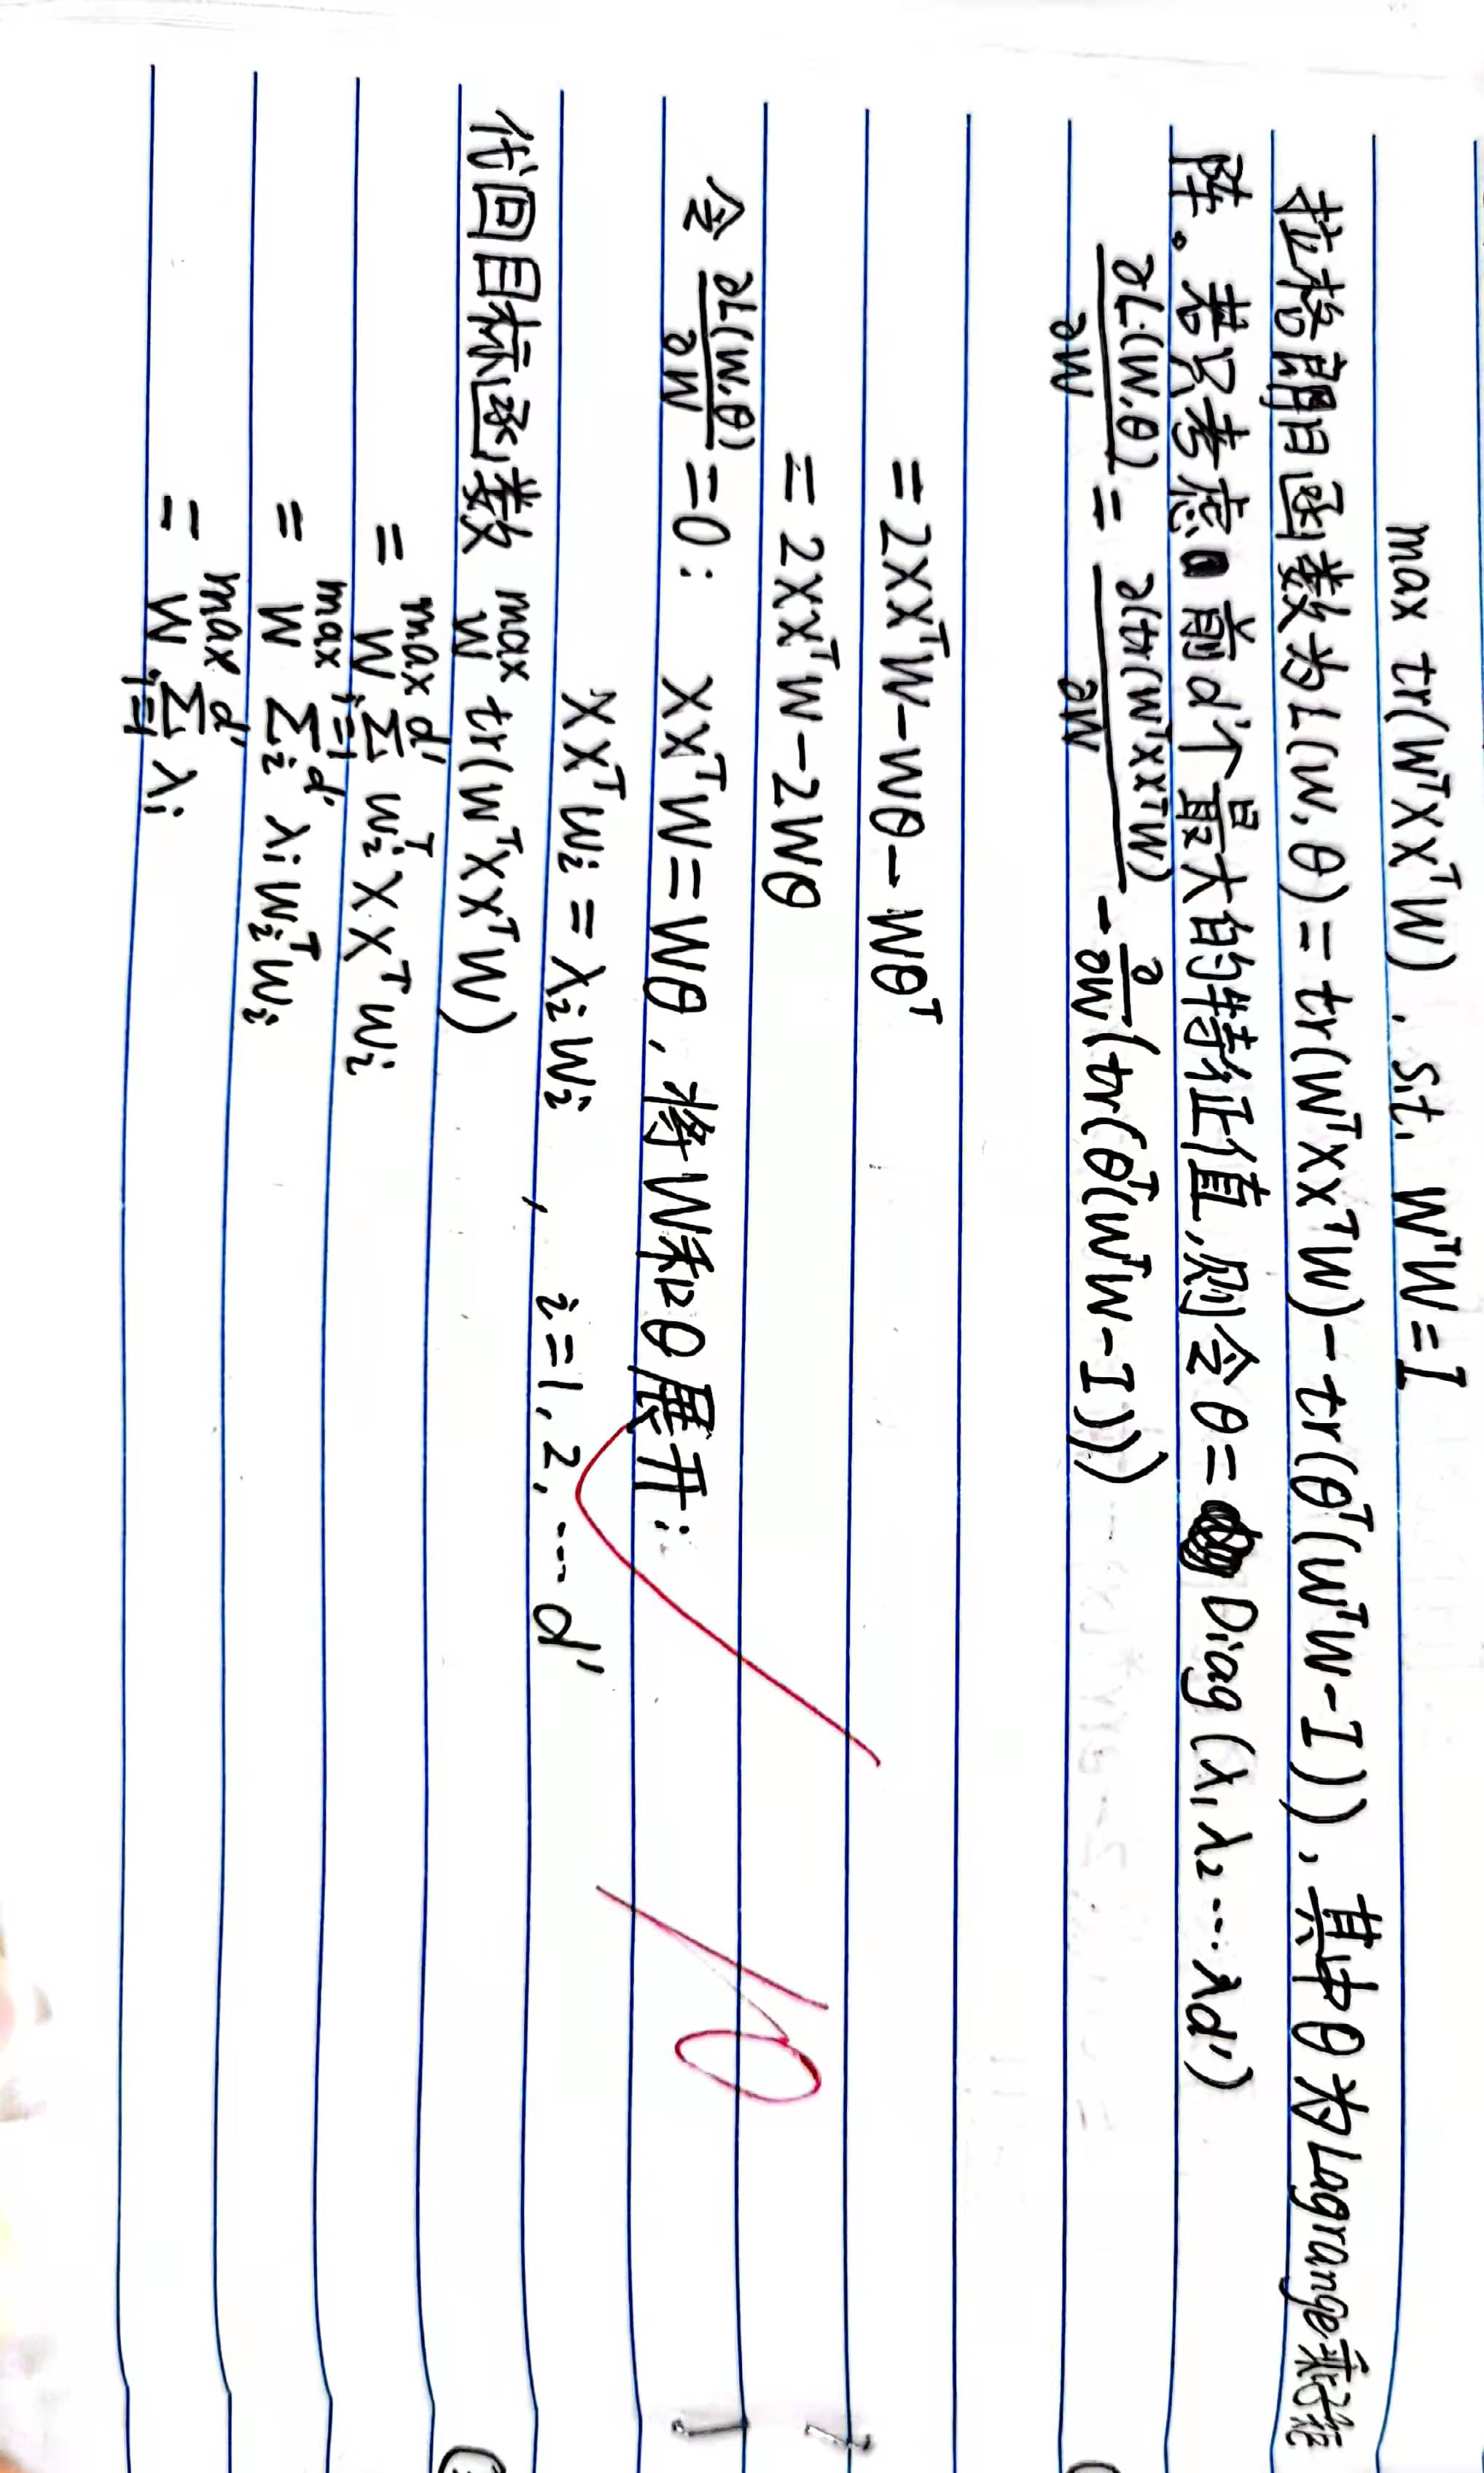 max tr(WᵀXXᵀW), s.t. WᵀW=I
拉格朗日函数为L(W,θ)=tr(WᵀXXᵀW)-tr(θᵀ(WᵀW-I)),其中θ为Lagrange乘子矩
阵。若只考虑前d'个最大的特征值,则令θ=Diag(λ₁λ₂…λd')
∂L(W,θ)/∂W = ∂(tr(WᵀXXᵀW)/∂W - ∂/∂W(tr(θᵀ(WᵀW-I)))
=2XXᵀW-Wθ-Wθᵀ
=2XXᵀW-2Wθ
令 ∂L(W,θ)/∂W=0: XXᵀW=Wθ,将W和θ展开:
XXᵀwᵢ=λᵢwᵢ, i=1,2,…d'
代回目标函数 max_W tr(WᵀXXᵀW)
= max_W Σ_{i=1}^{d'} wᵢᵀXXᵀwᵢ
= max_W Σ_i^{d'} λᵢwᵢᵀwᵢ
= max_W Σ_{i=1}^{d'} λᵢ